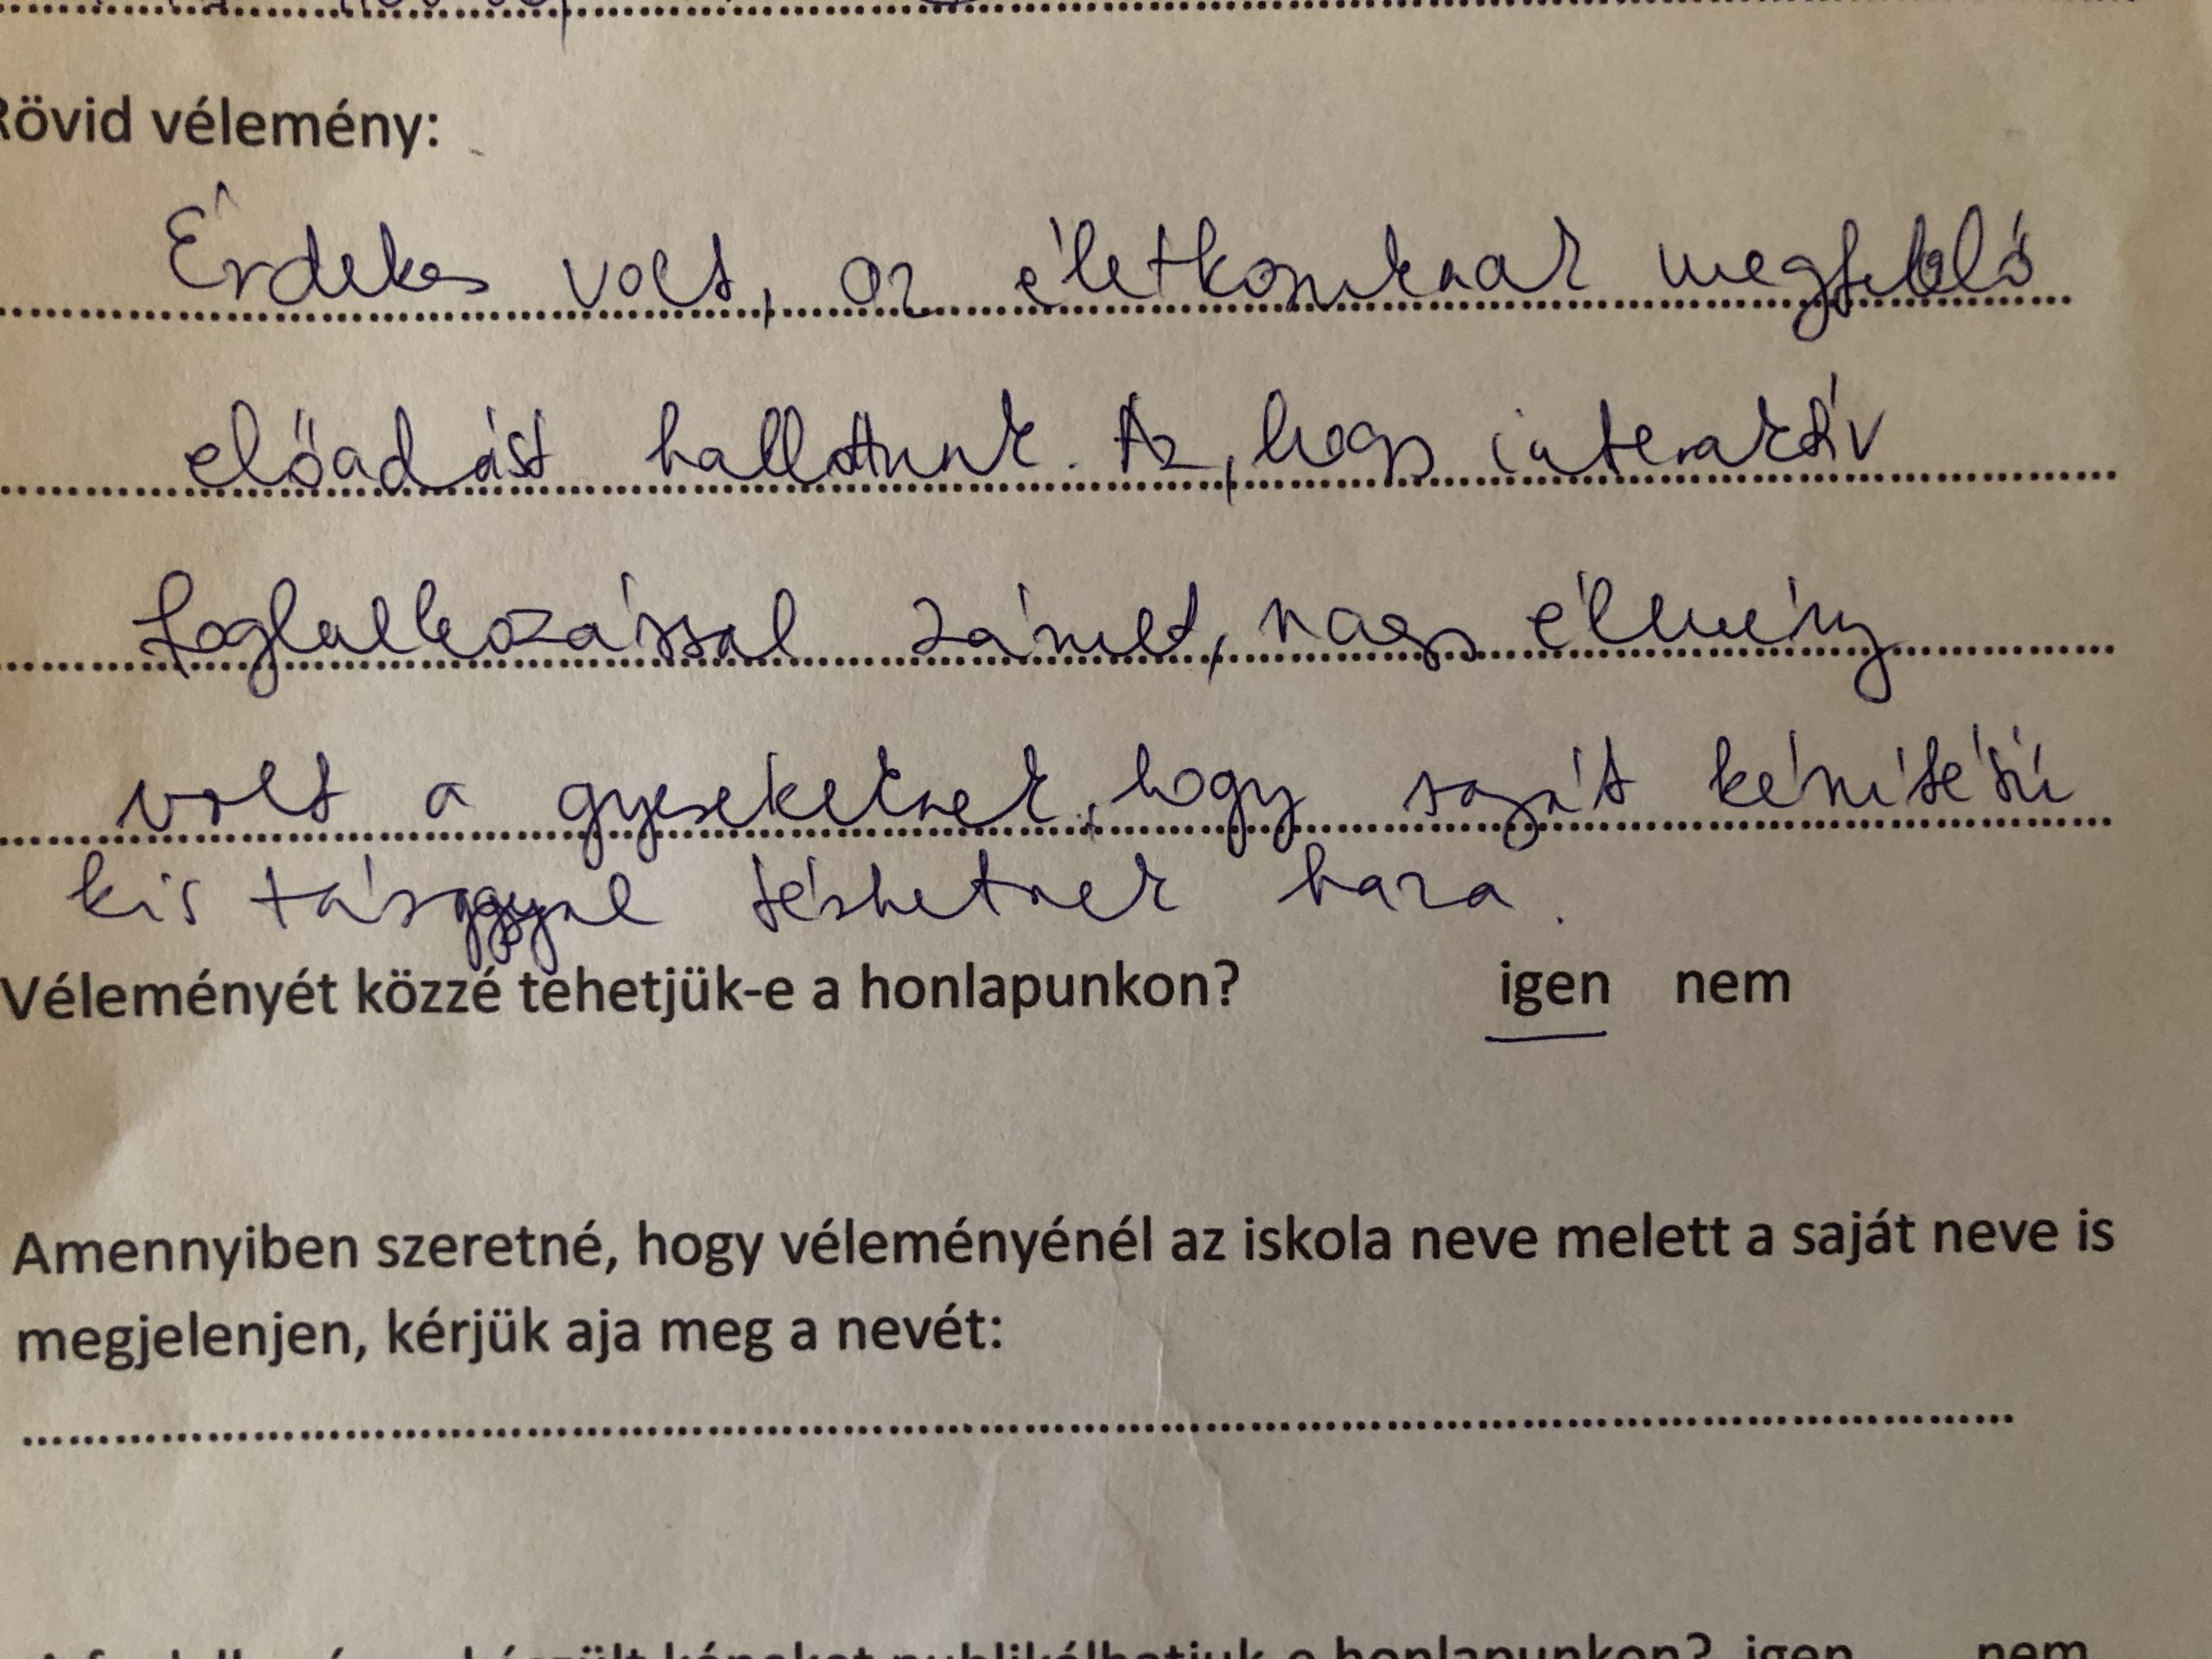 Rövid vélemény:
Érdekes volt, az életkoruknak megfelelő
előadást hallottunk. Az, hogy interaktív
foglalkozással zárult, nagy élmény
volt a gyerekeknek, hogy saját készítésű
kis tárggyal térhetnek haza.
Véleményét közzé tehetjük-e a honlapunkon? igen nem
Amennyiben szeretné, hogy véleményénél az iskola neve melett a saját neve is
megjelenjen, kérjük aja meg a nevét:
készült képeket publikálhatjuk-e honlapunkon? igen nem